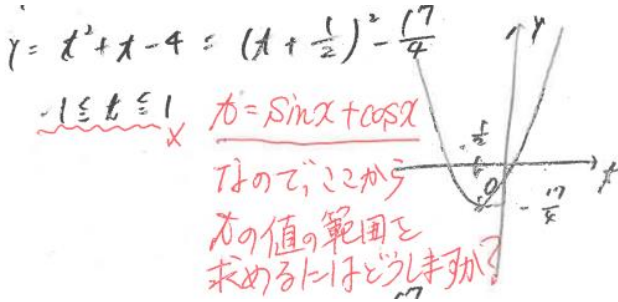 y = t² + t - 4 = (t + 1/2)² - 17/4
-1 ≦ t ≦ 1 ×
t = sinx + cosx
なので、ここから
tの値の範囲を
求めるにはどうしますか?
y
-1/2
O
t
-17/4